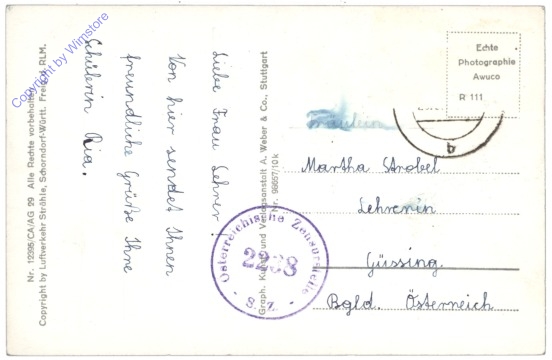 Nr. 12395/CA/AG 29 Alle Rechte vorbehalten
Copyright by Luftverkehr Strähle, Schorndorf-Württ. Freig. RLM.
Copyright by Wimstore
Liebe Frau Lehrer!
Von hier sendet Ihnen
freundliche Grüße Ihre
Schülerin Ria.
Graph. Kunst- und Verlagsanstalt A. Weber & Co., Stuttgart
Nr. 99657/10k
Echte
Photographie
Awuco
R 111
b
Fräulein
Martha Strobel
Lehrerin
Güssing
Bgld. Österreich
Österreichische Zensurstelle
2268
S. Z.